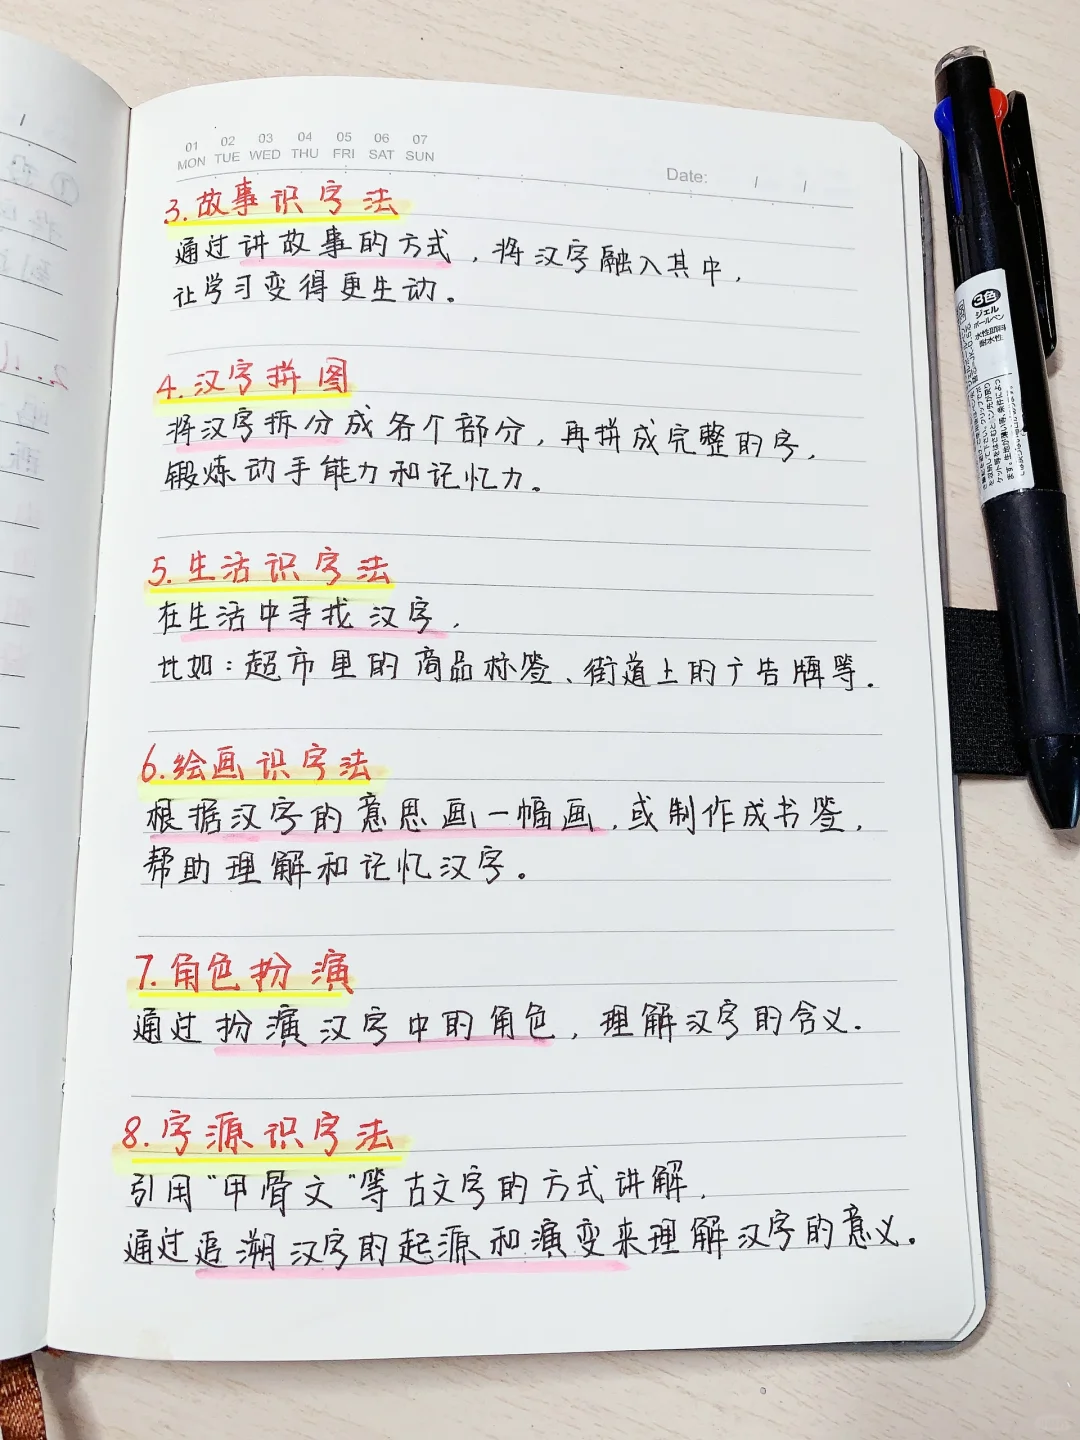 01 02 03 04 05 06 07
MON TUE WED THU FRI SAT SUN
Date: / /
3.故事识字法
通过讲故事的方式，将汉字融入其中，
让学习变得更生动。
4.汉字拼图
将汉字拆分成各个部分，再拼成完整的字，
锻炼动手能力和记忆力。
5.生活识字法
在生活中寻找汉字，
比如：超市里的商品标签、街道上的广告牌等。
6.绘画识字法
根据汉字的意思画一幅画，或制作成书签，
帮助理解和记忆汉字。
7.角色扮演
通过扮演汉字中的角色，理解汉字的含义。
8.字源识字法
引用“甲骨文”等古文字的方式讲解，
通过追溯汉字的起源和演变来理解汉字的意义。
3色
ジェル
ボールペン
水性染料
耐水性